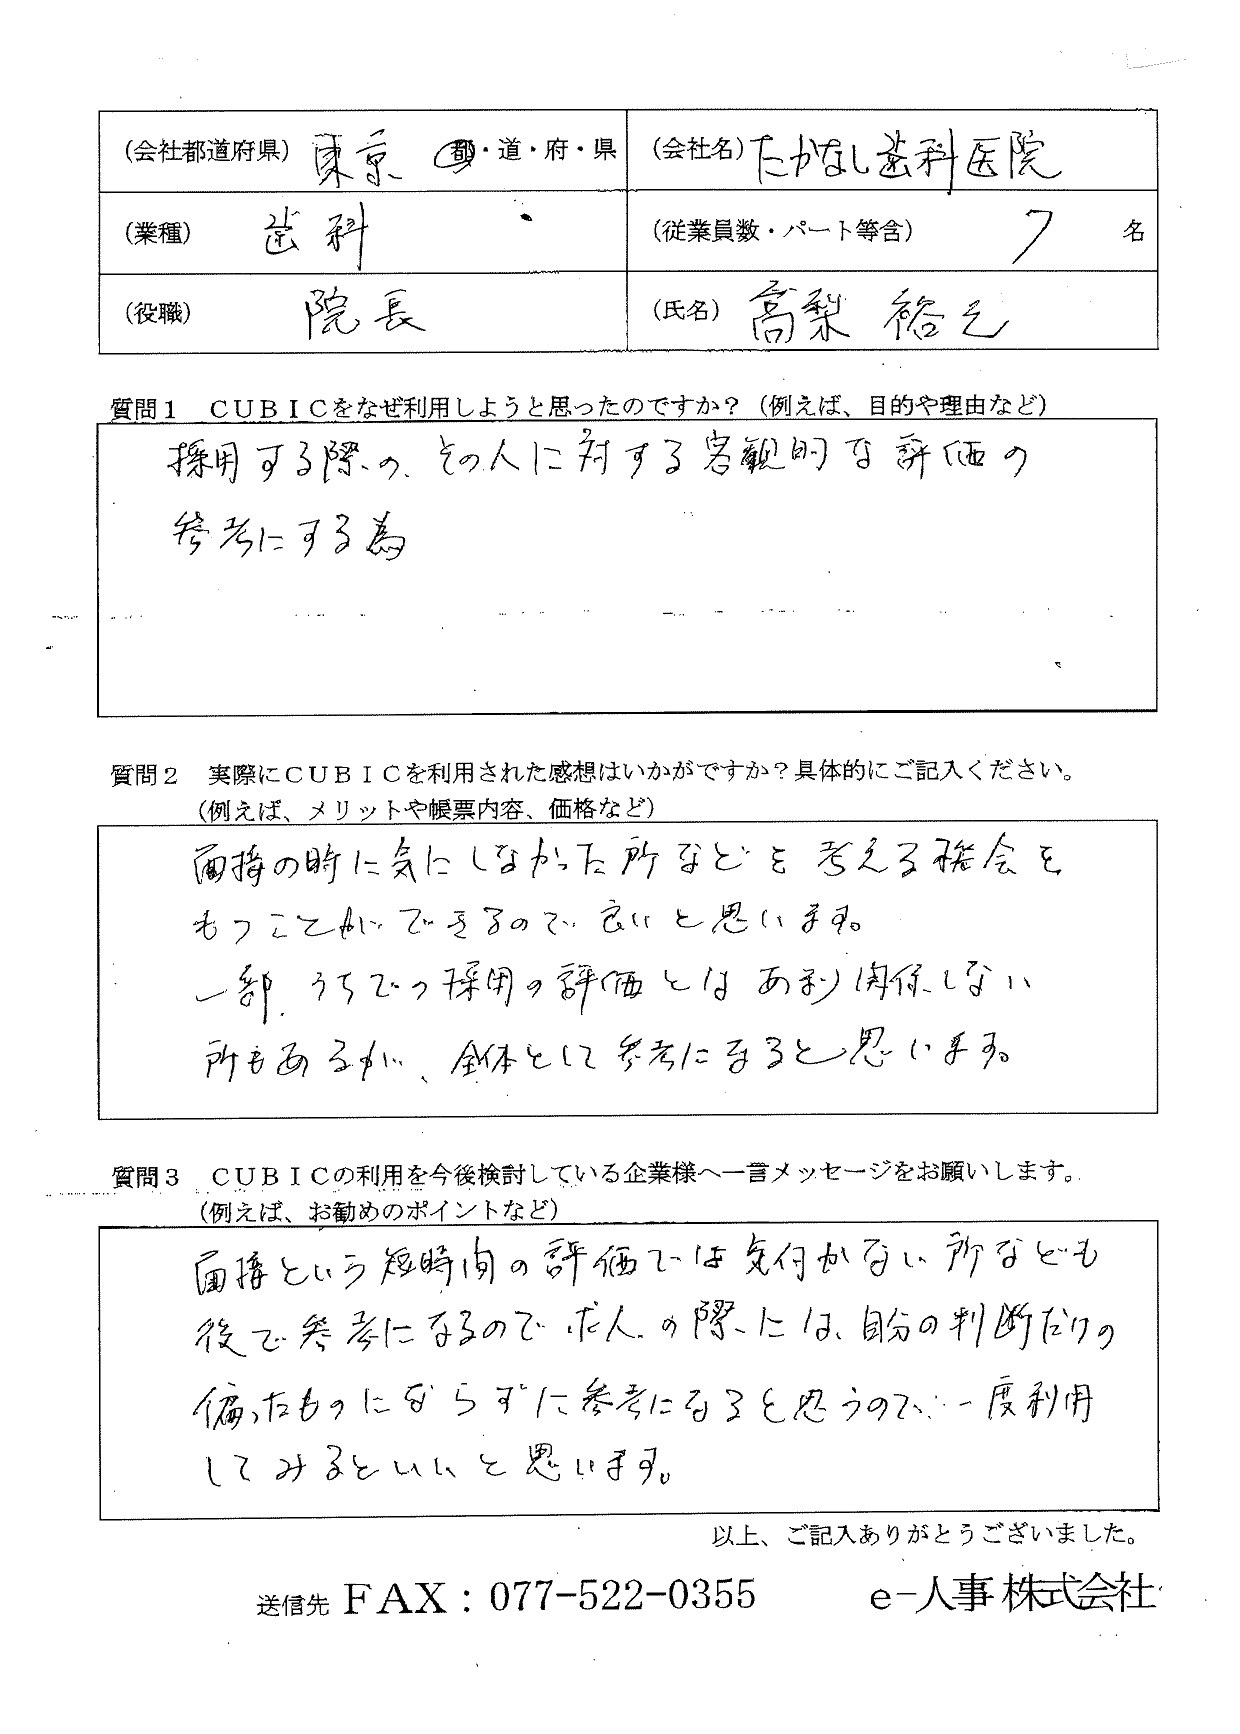 (会社都道府県) 東京 都・道・府・県 (会社名) たかなし歯科医院
(業種) 歯科 (従業員数・パート等含) 7 名
(役職) 院長 (氏名) 高梨 裕之
質問1 CUBICをなぜ利用しようと思ったのですか?(例えば、目的や理由など)
採用する際の、その人に対する客観的な評価の
参考にする為
質問2 実際にCUBICを利用された感想はいかがですか?具体的にご記入ください。
(例えば、メリットや帳票内容、価格など)
面接の時に気にしなかった所などを考える機会を
もつことができるので良いと思います。
一部、うちでの採用の評価とはあまり関係しない
所もあるが、全体として参考になると思います。
質問3 CUBICの利用を今後検討している企業様へ一言メッセージをお願いします。
(例えば、お勧めのポイントなど)
面接という短時間の評価では気付かない所なども
後で参考になるので求人の際には、自分の判断だけの
偏ったものにならずに参考になると思うので、一度利用
してみるといいと思います。
以上、ご記入ありがとうございました。
送信先 FAX:077-522-0355 e-人事株式会社